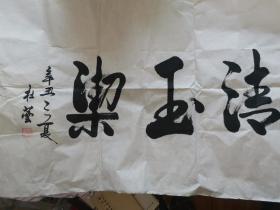 清玉潔
辛丑之夏